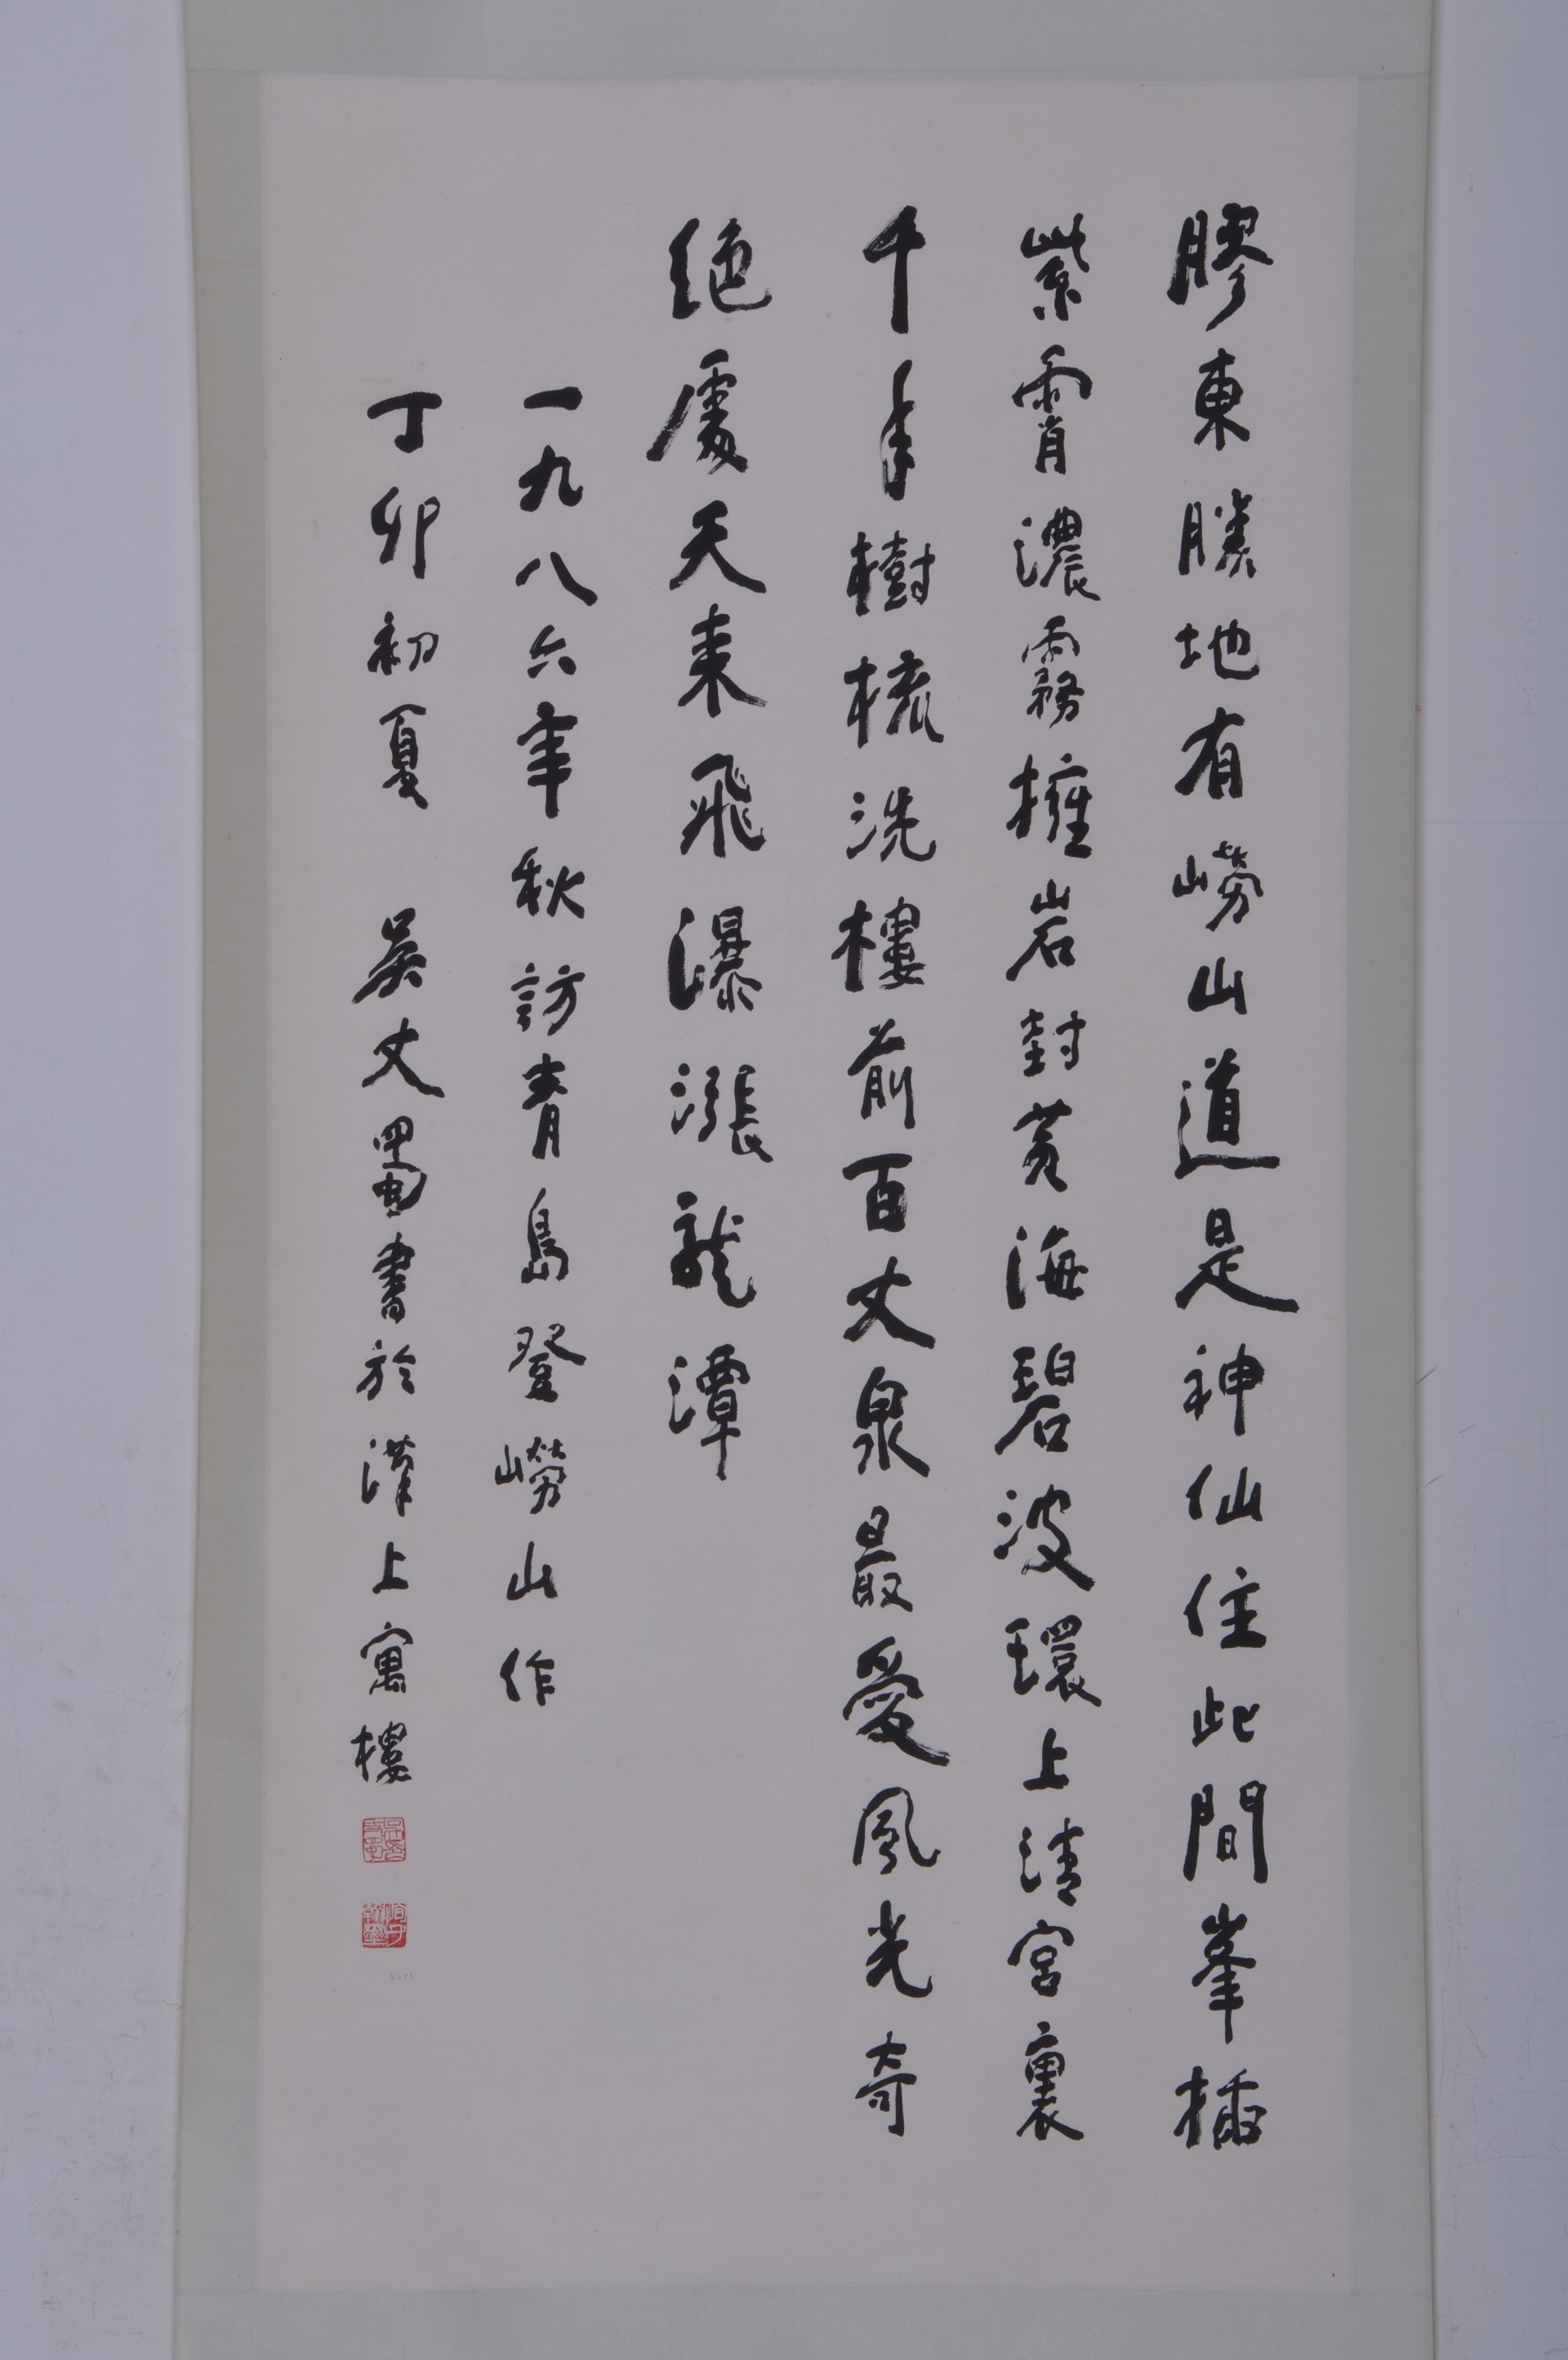 膠東勝地有嶗山道是神仙住此間峯插
紫霄濃霧擁岩封黃海碧波環上清宮裏
千年樹梳洗樓前百丈泉最愛風光奇
絕處天來飛瀑漲龍潭
一九八六年秋訪青島登嶗山作
丁卯初夏 吳丈蜀書於漢上寓樓
吳丈蜀